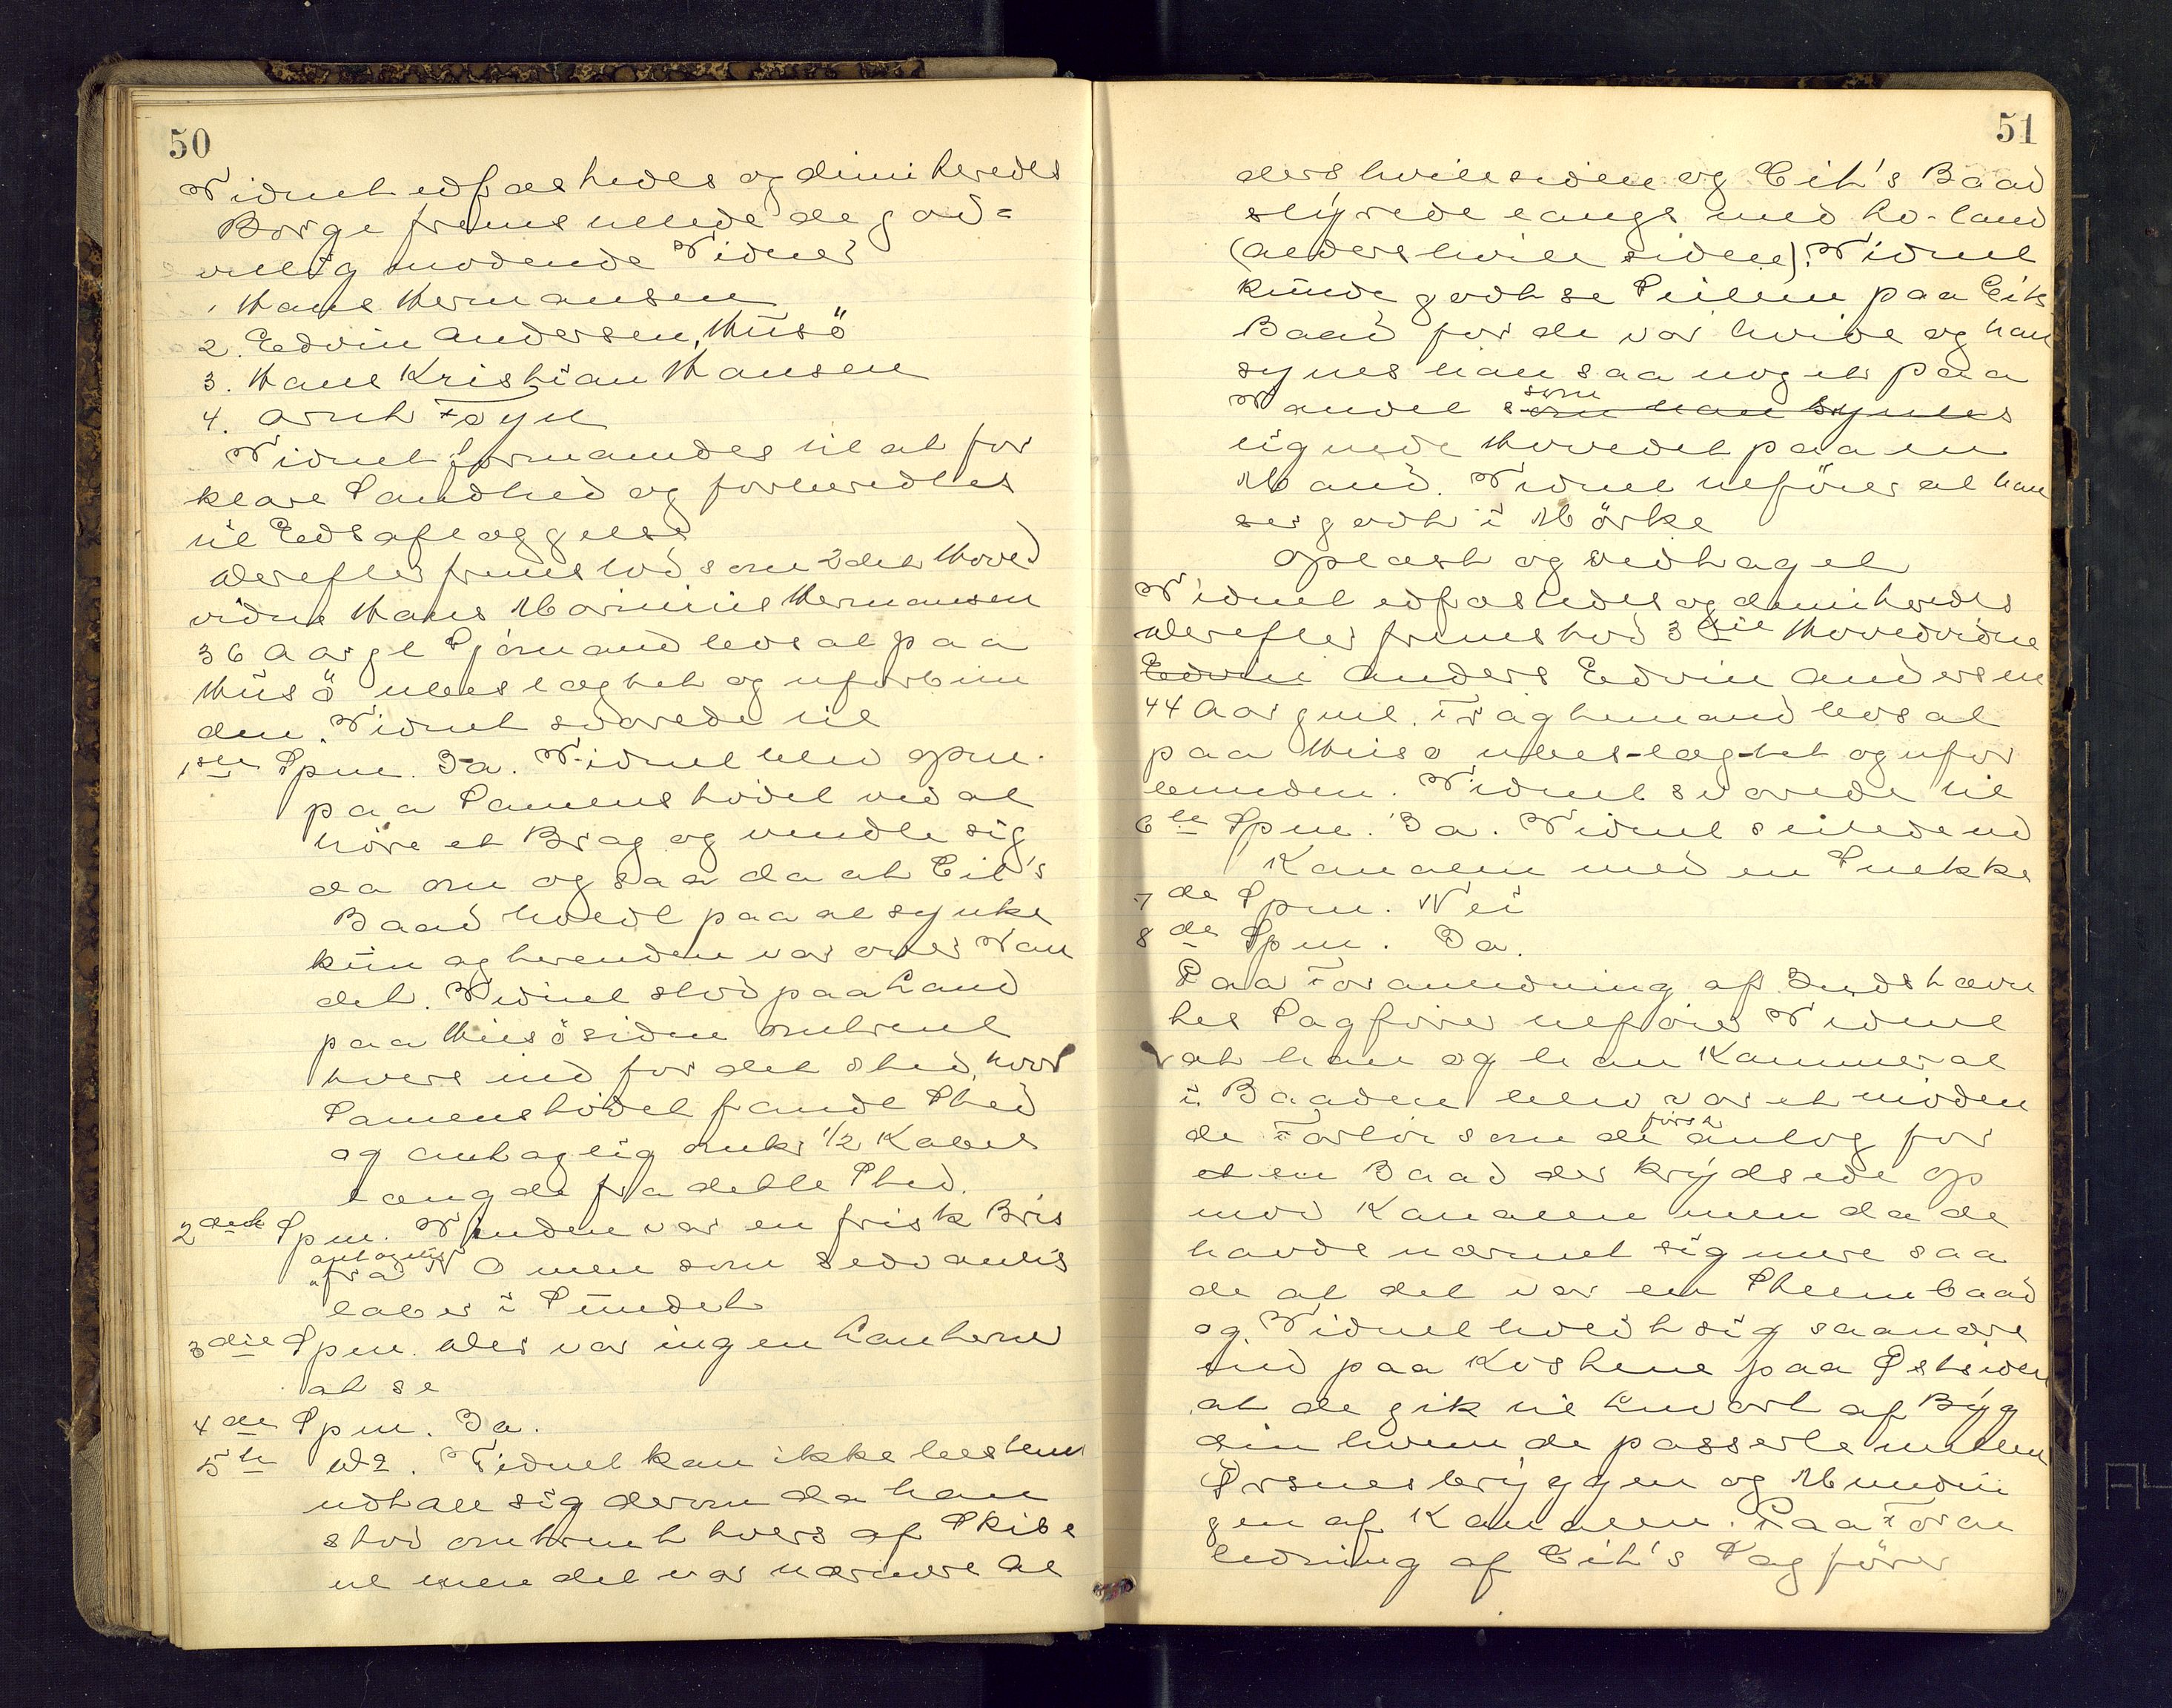 50
Vidnet edfæstedes og dimiteredes
Borge fremstillede de god=
villig mødende Vidner
1 Hans Hermansen
2. Edvin Andersen, Husö
3. Hans Kristian Hansen
4. Arnt Föyn
Vidnet formanedes til at for
klare Sandhed og forberedtes
til Edsaflæggelse
Derefter fremstod som 2det Hoved
vidne Hans Marinius Hermansen
36 Aar gl Sjömand bosat paa
Husö ubeslægtet og uforbun
den. Vidnet svarede til
1ste Spm. Ja. Vidnet blev opm.
paa Samenstödet ved at
höre et Brag og vendte sig
da om og saa da at Eik's
Baad holdt paa at synke
kun agterenden var over Van
det. Vidnet stod paa Land
paa Husösiden omtrent
tvers ind for det sted, hvor
Samenstödet fandt Sted
og antagelig omkr 1/2 Kabel
længde fra dette Sted.
2det Spm. Vinden var en frisk Bris
antagelig
fra N O men som sedvanlig
laber i Sundet
3die Spm. Der var ingen Lanterne
at se
4de Spm. Ja.
5te Do. Vidnet kan ikke bestemt
udtale sig derom da han
stod omtrent tvers af Skibe
ne men det var nærmere Al
51
dershvilesiden og Eik's Baad
styrede langs med Lo-land
(aldershvilesiden). Vidnet
kunde godt se Seilene paa Eiks
Baad for de var hvide og han
synes han saa noget paa
som
Vandet som han syntes
lignede Hovedet paa en
Mand. Vidnet tilföier at han
ser godt i Mörke
Oplæst og vedtaget
Vidnet edfæstedes og dimiteredes
Derefter fremstod 3die Hovedvidne
Edvin Anders Edvin Andersen
44 Aar gml. Fragtemand bosat
paa Husö ubeslægtet og ufor
bunden. Vidnet svarede til
6te Spm. Ja. Vidnet seilede ud
Kanalen med en Snekke
7de Spm. Nei
8de Spm. Ja.
Paa Foranledning af Indstævn
tes Sagförer tilföier Vidnet
at han og han Kammerat
i Baaden blev var et möden
först
de Fartöi som de antog for
et en Baad der krydsede op
mod Kanalen men da de
havde nærmet sig mere saa
de at det var en Steembaad
og Vidnet holdt sig saa nære
ind paa Kostene paa Østsiden
at de gik til Luvart af Byg
din hvem de passerte mellem
Ørsnesbryggen og Mundin
gen af Kanalen. Paa Foran
ledning af Eik's Sagförer